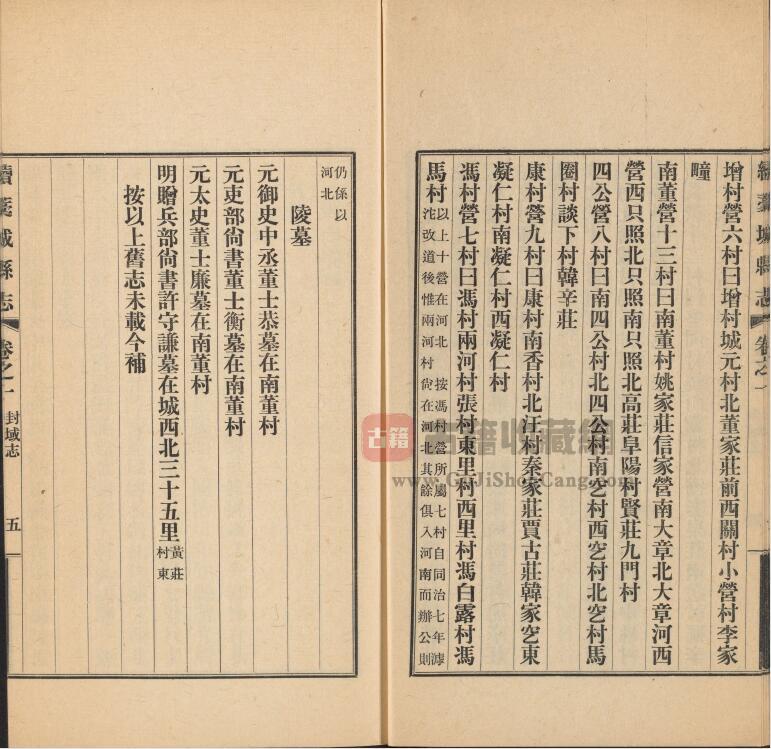 續藁城縣志
卷之一
增村營六村曰增村城元村北董家莊前西關村小營村李家
疃
南董營十三村曰南董村姚家莊信家營南大章北大章河西
營西只照北只照南只照北高莊阜陽村賢莊九門村
四公營八村曰南四公村北四公村南孝村西孝村北孝村馬
圈村談下村韓辛莊
康村營九村曰康村南香村北汪村秦家莊賈古莊韓家孝東
凝仁村南凝仁村西凝仁村
馮村營七村曰馮村兩河村張村東里村西里村馮白露村馮
馬村
以上十營在河北 按馮村營所屬七村自同治七年滹
沱改道後惟兩河村尙在河北其餘俱入河南而辦公則
仍係以
河北
陵墓
元御史中丞董士恭墓在南董村
元吏部尙書董士衡墓在南董村
元太史董士廉墓在南董村
明贈兵部尙書許守謙墓在城西北三十五里
黃莊
村東
按以上舊志未載今補
續藁城縣志
卷之一
封域志
五
古籍
古籍收藏網
www.GuJiShouCang.com